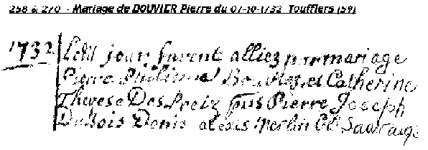 258 & 270 - Mariage de BOUVIER Pierre du 07-10-1732 Toufflers (59)
1732 Ledit jour furent alliez par mariage
Pierre Philippe et Catherine
Therese Des Pierre Joseph
DuBois Denis alexis Merlin et Sauvage